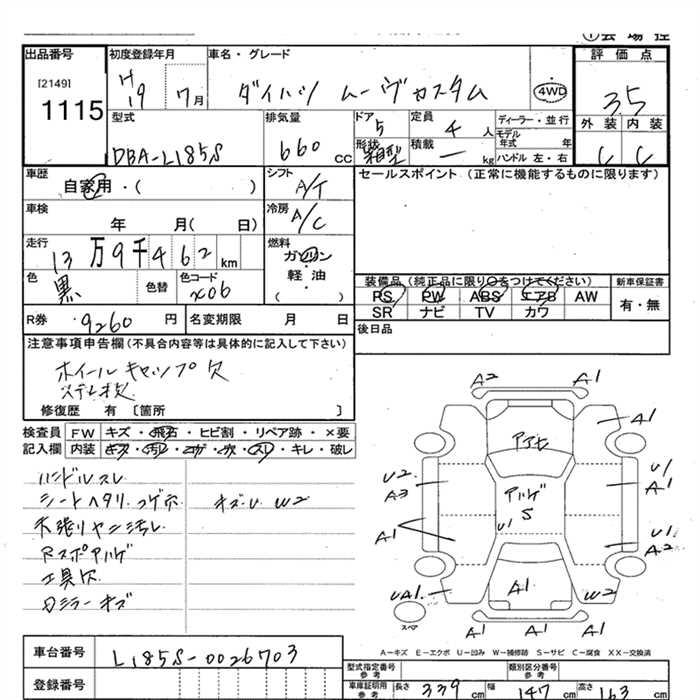 出品番号 初度登録年月 車名・グレード 評価点
[2149]
1115
H19 7月 ダイハツ ムーヴカスタム 4WD 3.5
型式 排気量 ドア 定員 ディーラー・並行 外装 内装
DBA-L185S 660cc 5 4人 モデル年式 年 C C
形状 箱型 積載 ー kg ハンドル 左・右
車歴 シフト セールスポイント (正常に機能するものに限ります)
自家用・( ) A/T
車検 冷房
年 月( 日) A/C
走行 燃料
13万9千462km ガソリン
色 色替 色コード 軽油
黒 X06 ( )
装備品(純正品に限り○をつけてください) 新車保証書
PS PW ABS エアB AW 有・無
SR ナビ TV カワ
R券 9260円 名変期限 月 日
後日品
注意事項申告欄(不具合内容等は具体的に記入して下さい)
ホイールキャップ欠
修復歴 有 〔箇所 〕
検査員 FW キズ・飛石・ヒビ割・リペア跡・×要
記入欄 内装 キズ・汚レ・コゲ・穴・スレ・キレ・破レ
ハンドルスレ
シートヘタリ コゲ穴 キズU W2
天張リヤニ汚レ
Rスポアルゲ
工具欠
Dミラーキズ
A2 A1
アマセ A1
U2 U1
A3 A1
アルゲ
S
U1
A1 U1
A2
UA1 A1 W2
スペア A1 A1 A1
A−キズ E−エクボ U−凹み W−補修跡 S−サビ C−腐食 XX−交換済
車台番号 L185S-0026703
型式指定番号 参考 類別区分番号 参考
登録番号 車庫証明用 参考 長さ 339cm 幅 147cm 高さ 163cm